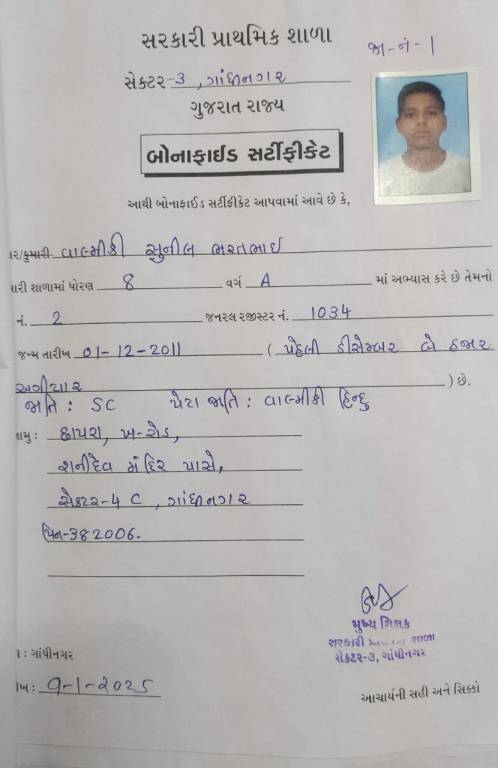 સરકારી પ્રાથમિક શાળા
જા-નં-1
સેક્ટર-3, ગાંધીનગર
ગુજરાત રાજ્ય
બોનાફાઈડ સર્ટીફીકેટ
આથી બોનાફાઈડ સર્ટીફીકેટ આપવામાં આવે છે કે,
ાર/કુમારી વાલ્મીકી સુનીલ ભરતભાઈ
ારી શાળામાં ધોરણ 8 વર્ગ A માં અભ્યાસ કરે છે તેમનો
નં. 2 જનરલ રજીસ્ટર નં. 1034
જન્મ તારીખ 01-12-2011 ( પહેલી ડીસેમ્બર બે હજાર
અગીયાર ) છે.
જાતિ : SC પેટા જાતિ : વાલ્મીકી હિન્દુ
નામુ : છાપરા, ખ-રોડ,
શનીદેવ મંદિર પાસે,
સેક્ટર-4 C, ગાંધીનગર
પિન-382006.
મુખ્ય શિક્ષક
સરકારી શાળા
સેક્ટર-૩, ગાંધીનગર
: ગાંધીનગર
ખ : 9-1-2025
આચાર્યની સહી અને સિક્કો